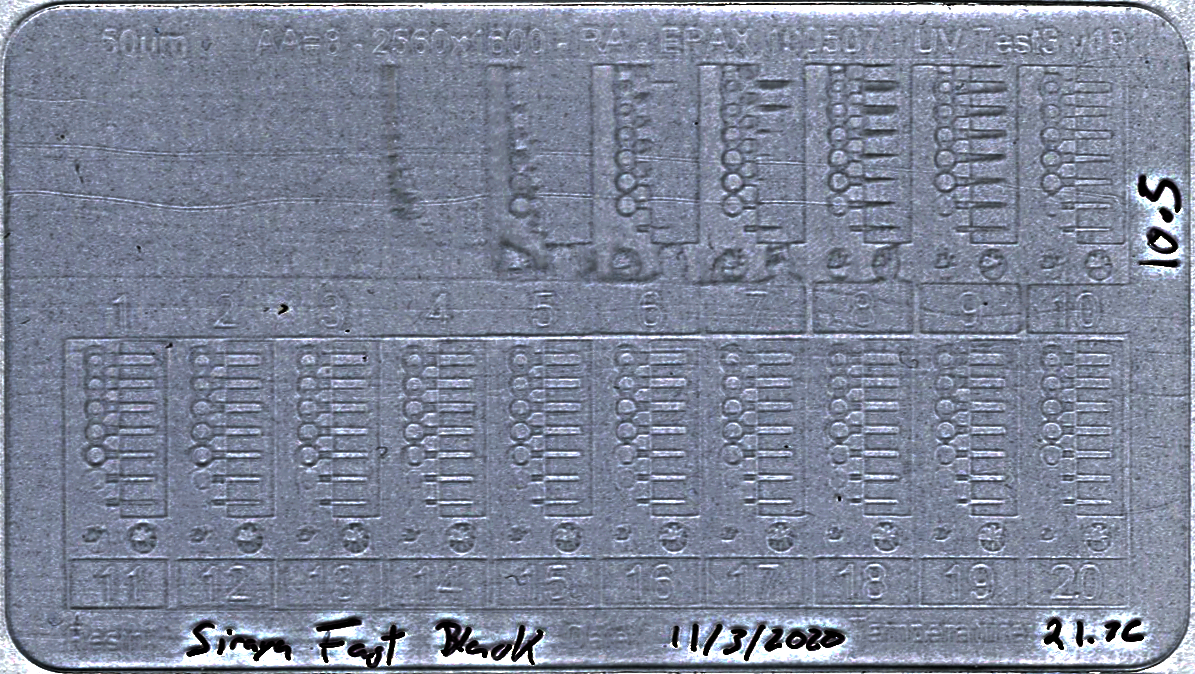 50um AA=8 - 2560x1600 - RA : EPAX UV Test3
10.5
1 2 3 4 5 6 7 8 9 10
11 12 13 14 15 16 17 18 19 20
Resin Siraya Fast Black Date 11/3/2020 21.7C